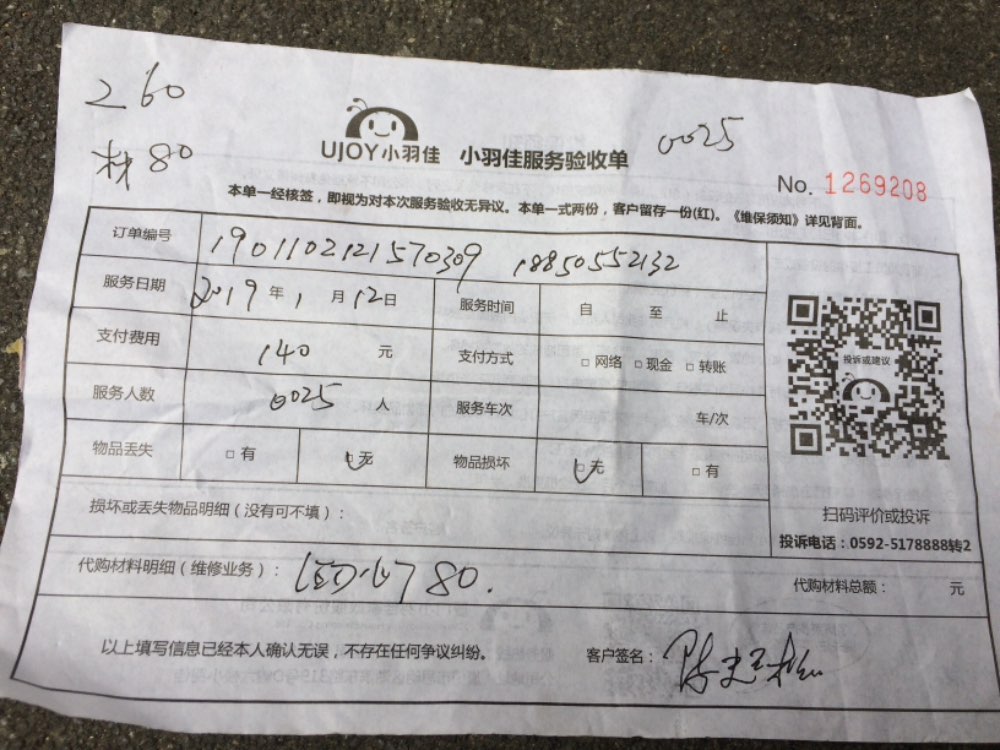 260
材80
UJOY小羽佳 小羽佳服务验收单
0025
No. 1269208
本单一经核签，即视为对本次服务验收无异议。本单一式两份，客户留存一份(红)。《维保须知》详见背面。
订单编号 1901102121570309 18850552132
服务日期 2019年1月12日 服务时间 自 至 止
支付费用 140 元 支付方式 □网络 □现金 □转账
服务人数 0025 人 服务车次 车/次
物品丢失 □有 □无 物品损坏 □无 □有
投诉或建议
扫码评价或投诉
投诉电话：0592-5178888转2
损坏或丢失物品明细（没有可不填）：
代购材料明细（维修业务）： 80. 代购材料总额： 元
以上填写信息已经本人确认无误，不存在任何争议纠纷。 客户签名：